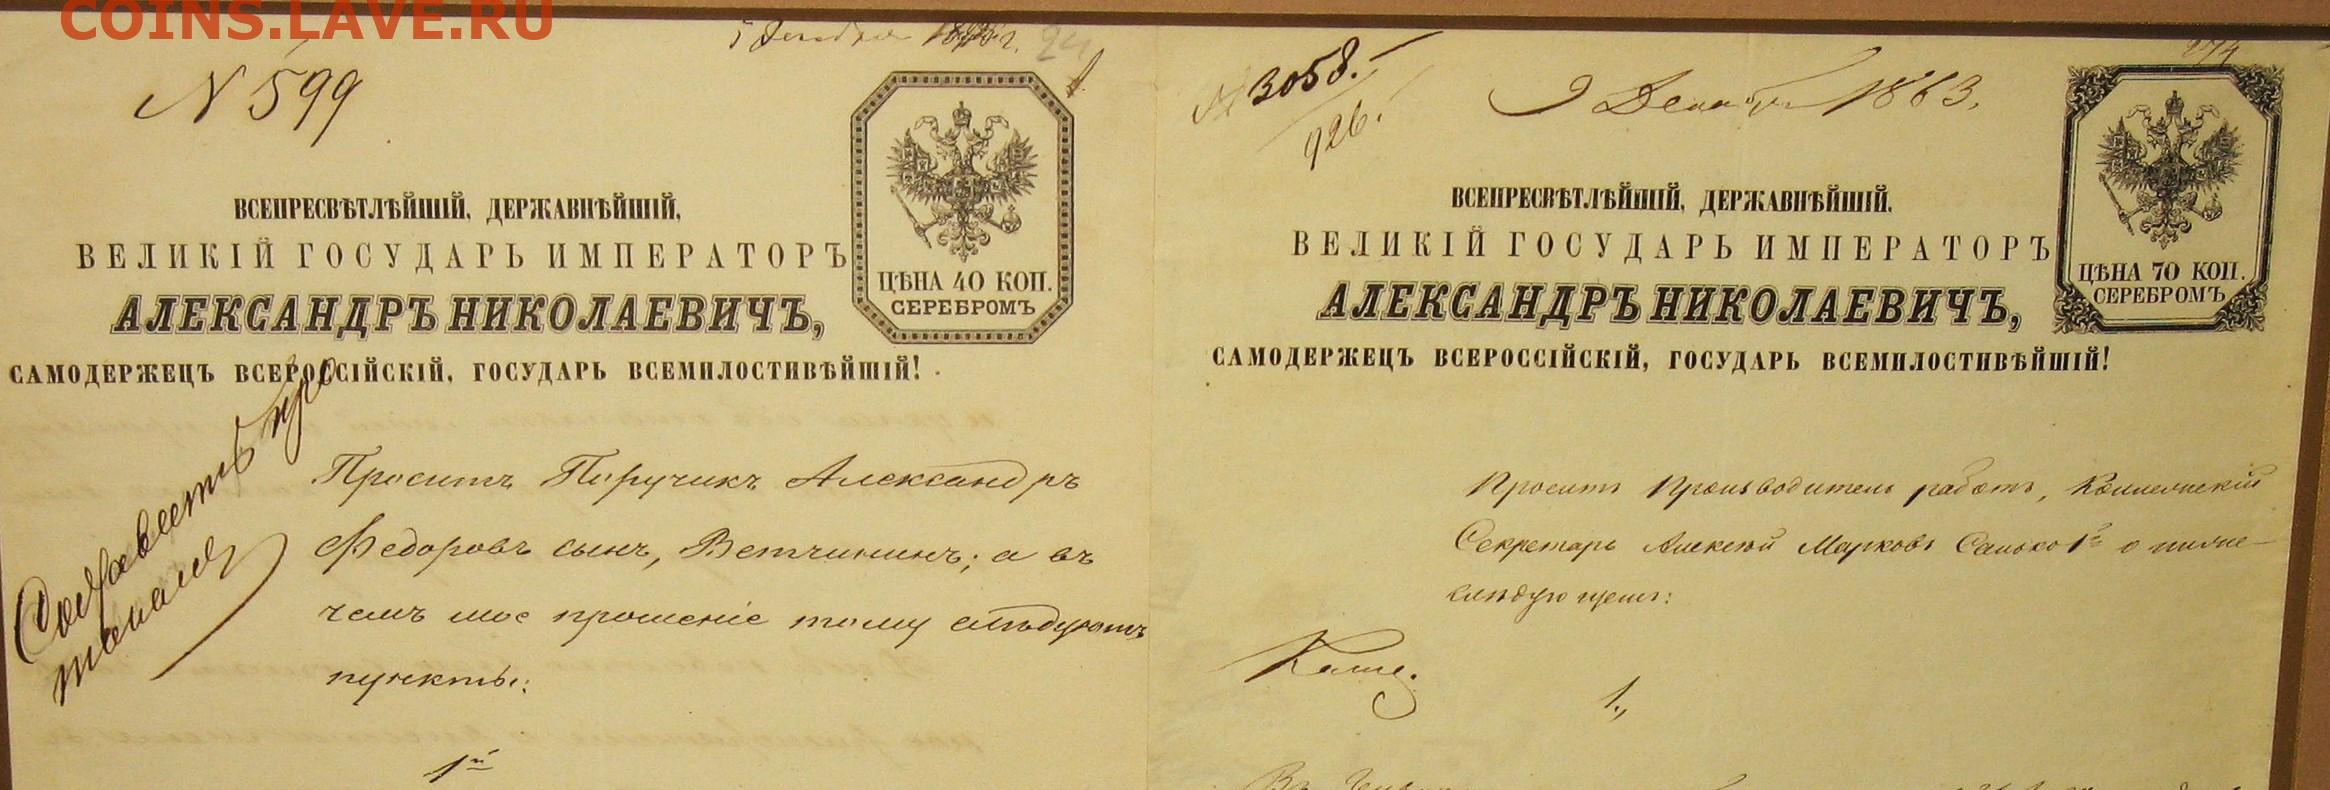 COINS.LAVE.RU
N 599
ВСЕПРЕСВѢТЛѢЙШІЙ, ДЕРЖАВНѢЙШІЙ,
ВЕЛИКІЙ ГОСУДАРЬ ИМПЕРАТОРЪ
АЛЕКСАНДРЪ НИКОЛАЕВИЧЪ,
САМОДЕРЖЕЦЪ ВСЕРОССІЙСКІЙ, ГОСУДАРЬ ВСЕМИЛОСТИВѢЙШІЙ!
ЦѢНА 40 КОП.
СЕРЕБРОМЪ
Проситъ Поручикъ Александръ
Федоровъ сынъ, Ветчининъ; а въ
чемъ мое прошеніе тому слѣдуютъ
пункты:
1й
3058.
926.
9 Декабря 1863.
274
ВСЕПРЕСВѢТЛѢЙШІЙ, ДЕРЖАВНѢЙШІЙ,
ВЕЛИКІЙ ГОСУДАРЬ ИМПЕРАТОРЪ
АЛЕКСАНДРЪ НИКОЛАЕВИЧЪ,
САМОДЕРЖЕЦЪ ВСЕРОССІЙСКІЙ, ГОСУДАРЬ ВСЕМИЛОСТИВѢЙШІЙ!
ЦѢНА 70 КОП.
СЕРЕБРОМЪ
Проситъ Производитель работъ, Коллежскій
Секретарь Алексѣй Марковъ 1й о ниже-
слѣдующемъ:
1.,